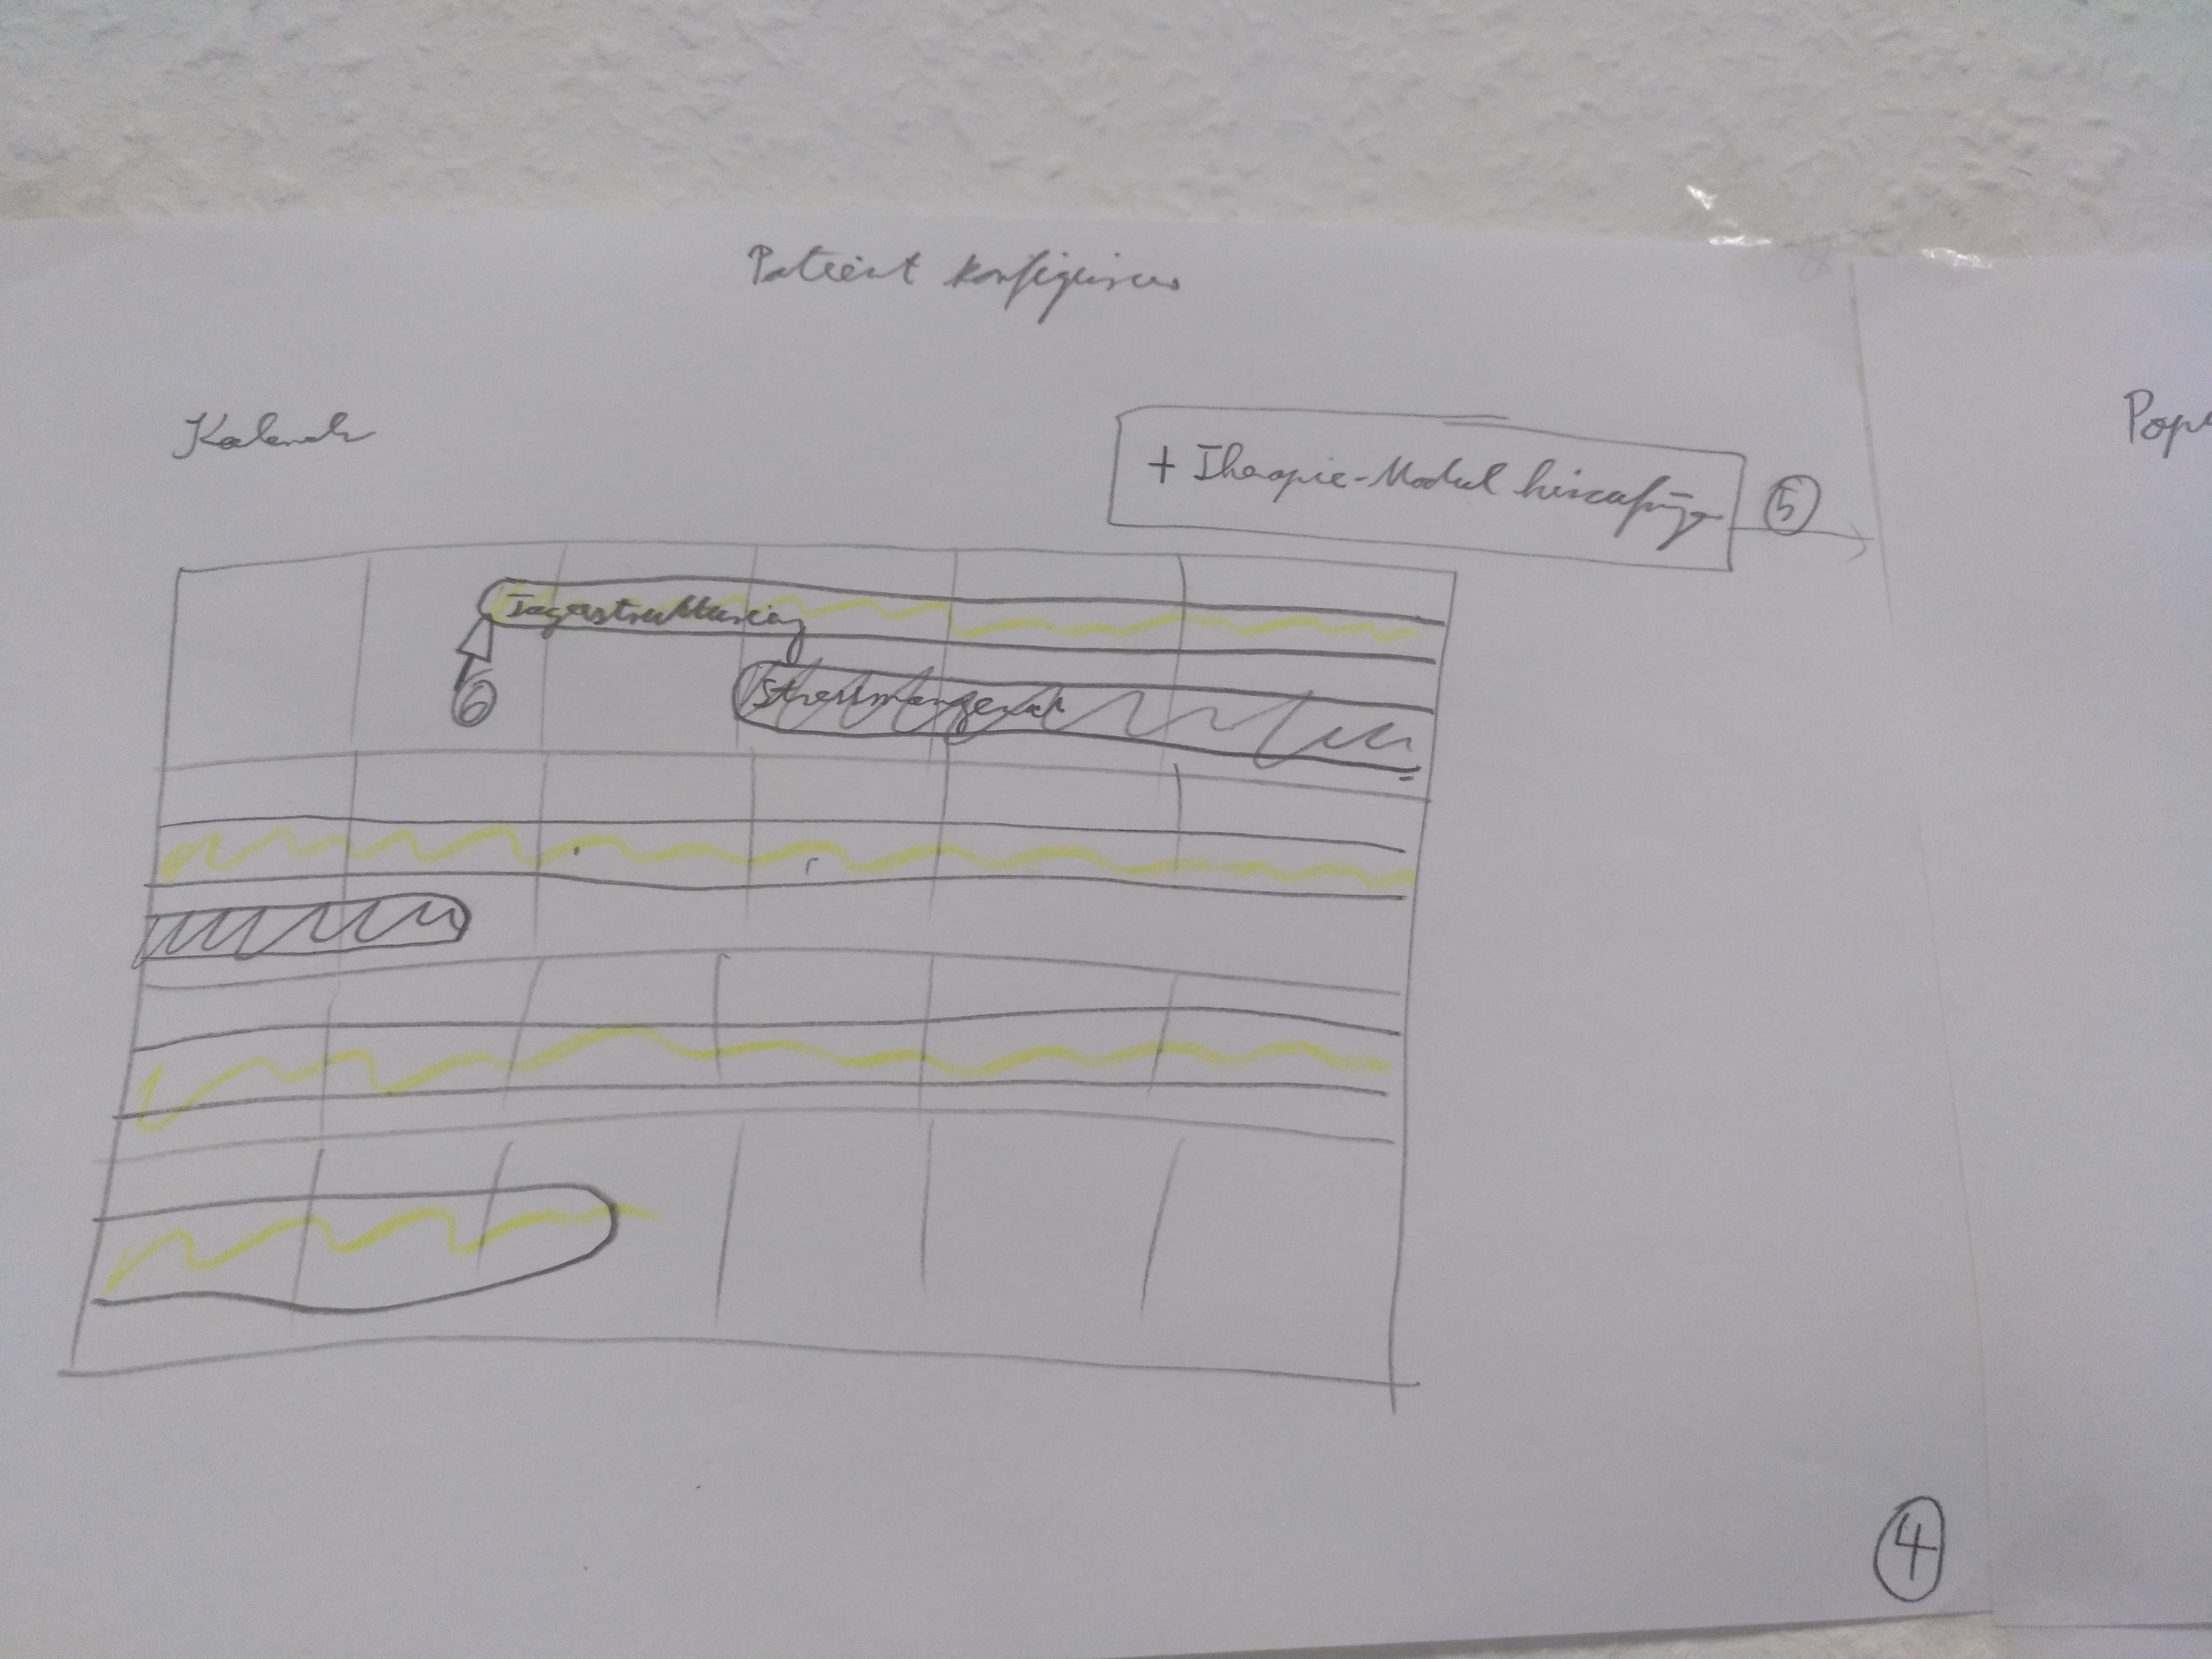 Patient konfigurieren
Kalender
+ Therapie-Modul hinzufügen
5
Popu
Tagesstrukturierung
6
Stressmanagement
4